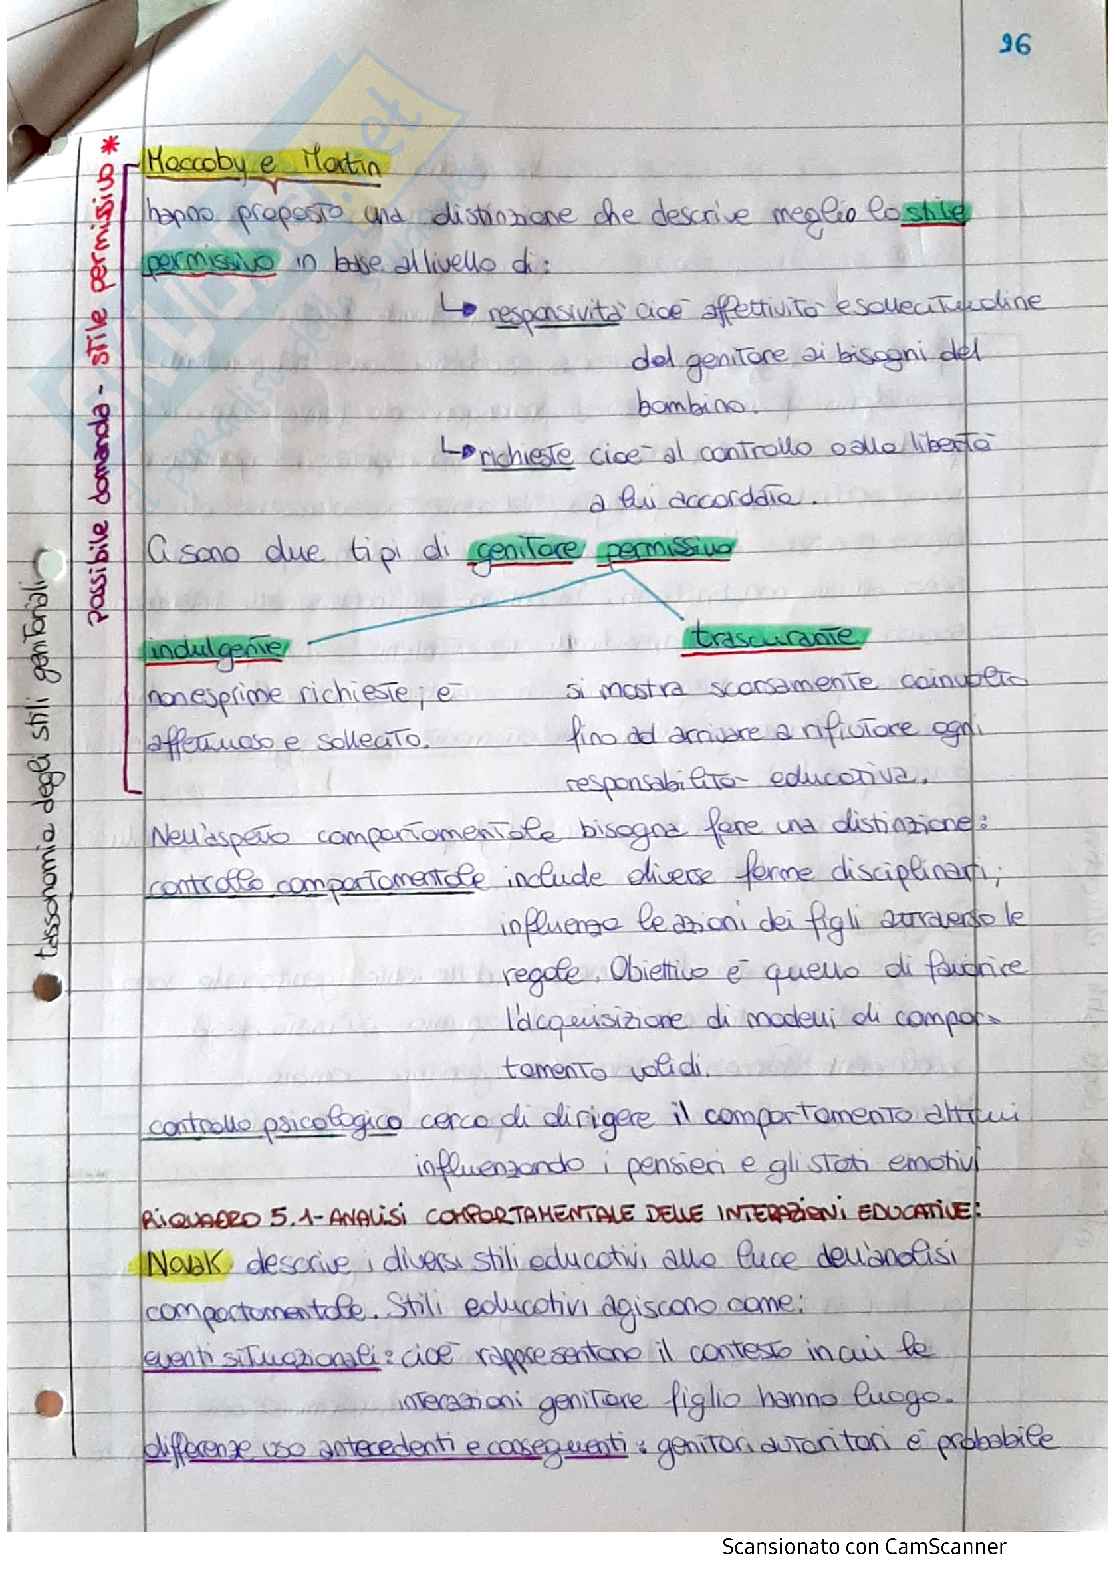 26
Maccoby e Martin
hanno proposto una distinzione che descrive meglio lo stile
permissivo in base al livello di:
↳ responsività cioè affettività e sollecitudine
del genitore ai bisogni del
bambino.
↳ richieste cioè al controllo o alla libertà
a lui accordata.
Ci sono due tipi di genitore permissivo
indulgente
trascurante
non esprime richieste, è
affettuoso e sollecito.
si mostra scarsamente coinvolto
fino ad arrivare a rifiutare ogni
responsabilità educativa.
Nell'aspetto comportamentale bisogna fare una distinzione:
controllo comportamentale include diverse forme disciplinari;
influenza le azioni dei figli attraverso le
regole. Obiettivo è quello di favorire
l'acquisizione di modelli di compor-
tamento validi.
controllo psicologico cerca di dirigere il comportamento altrui
influenzando i pensieri e gli stati emotivi
RIQUADRO 5.1-ANALISI COMPORTAMENTALE DELLE INTERAZIONI EDUCATIVE:
Novak descrive i diversi stili educativi alla luce dell'analisi
comportamentale. Stili educativi agiscono come:
eventi situazionali: cioè rappresentano il contesto in cui le
interazioni genitore figlio hanno luogo.
differenze uso antecedenti e conseguenti: genitori autoritari è probabile
possibile domanda - stile permissivo *
tassonomia degli stili genitoriali
Scansionato con CamScanner